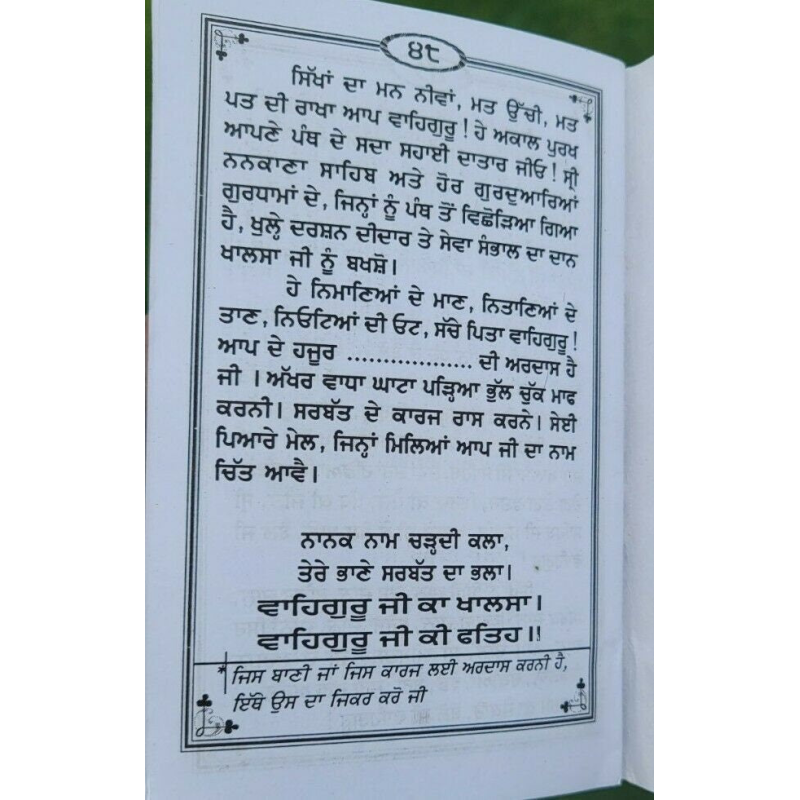 ੪੮
ਸਿੱਖਾਂ ਦਾ ਮਨ ਨੀਵਾਂ, ਮਤ ਉੱਚੀ, ਮਤ
ਪਤ ਦੀ ਰਾਖਾ ਆਪ ਵਾਹਿਗੁਰੂ! ਹੇ ਅਕਾਲ ਪੁਰਖ
ਆਪਣੇ ਪੰਥ ਦੇ ਸਦਾ ਸਹਾਈ ਦਾਤਾਰ ਜੀਓ! ਸ੍ਰੀ
ਨਨਕਾਣਾ ਸਾਹਿਬ ਅਤੇ ਹੋਰ ਗੁਰਦੁਆਰਿਆਂ
ਗੁਰਧਾਮਾਂ ਦੇ, ਜਿਨ੍ਹਾਂ ਨੂੰ ਪੰਥ ਤੋਂ ਵਿਛੋੜਿਆ ਗਿਆ
ਹੈ, ਖੁਲ੍ਹੇ ਦਰਸ਼ਨ ਦੀਦਾਰ ਤੇ ਸੇਵਾ ਸੰਭਾਲ ਦਾ ਦਾਨ
ਖਾਲਸਾ ਜੀ ਨੂੰ ਬਖਸ਼ੋ।
ਹੇ ਨਿਮਾਣਿਆਂ ਦੇ ਮਾਣ, ਨਿਤਾਣਿਆਂ ਦੇ
ਤਾਣ, ਨਿਓਟਿਆਂ ਦੀ ਓਟ, ਸੱਚੇ ਪਿਤਾ ਵਾਹਿਗੁਰੂ!
ਆਪ ਦੇ ਹਜੂਰ .................. ਦੀ ਅਰਦਾਸ ਹੈ
ਜੀ । ਅੱਖਰ ਵਾਧਾ ਘਾਟਾ ਪੜ੍ਹਿਆ ਭੁੱਲ ਚੁੱਕ ਮਾਫ
ਕਰਨੀ। ਸਰਬੱਤ ਦੇ ਕਾਰਜ ਰਾਸ ਕਰਨੇ। ਸੇਈ
ਪਿਆਰੇ ਮੇਲ, ਜਿਨ੍ਹਾਂ ਮਿਲਿਆਂ ਆਪ ਜੀ ਦਾ ਨਾਮ
ਚਿੱਤ ਆਵੈ।
ਨਾਨਕ ਨਾਮ ਚੜ੍ਹਦੀ ਕਲਾ,
ਤੇਰੇ ਭਾਣੇ ਸਰਬੱਤ ਦਾ ਭਲਾ।
ਵਾਹਿਗੁਰੂ ਜੀ ਕਾ ਖਾਲਸਾ।
ਵਾਹਿਗੁਰੂ ਜੀ ਕੀ ਫਤਿਹ॥
*ਜਿਸ ਬਾਣੀ ਜਾਂ ਜਿਸ ਕਾਰਜ ਲਈ ਅਰਦਾਸ ਕਰਨੀ ਹੈ,
ਇੱਥੇ ਉਸ ਦਾ ਜਿਕਰ ਕਰੋ ਜੀ